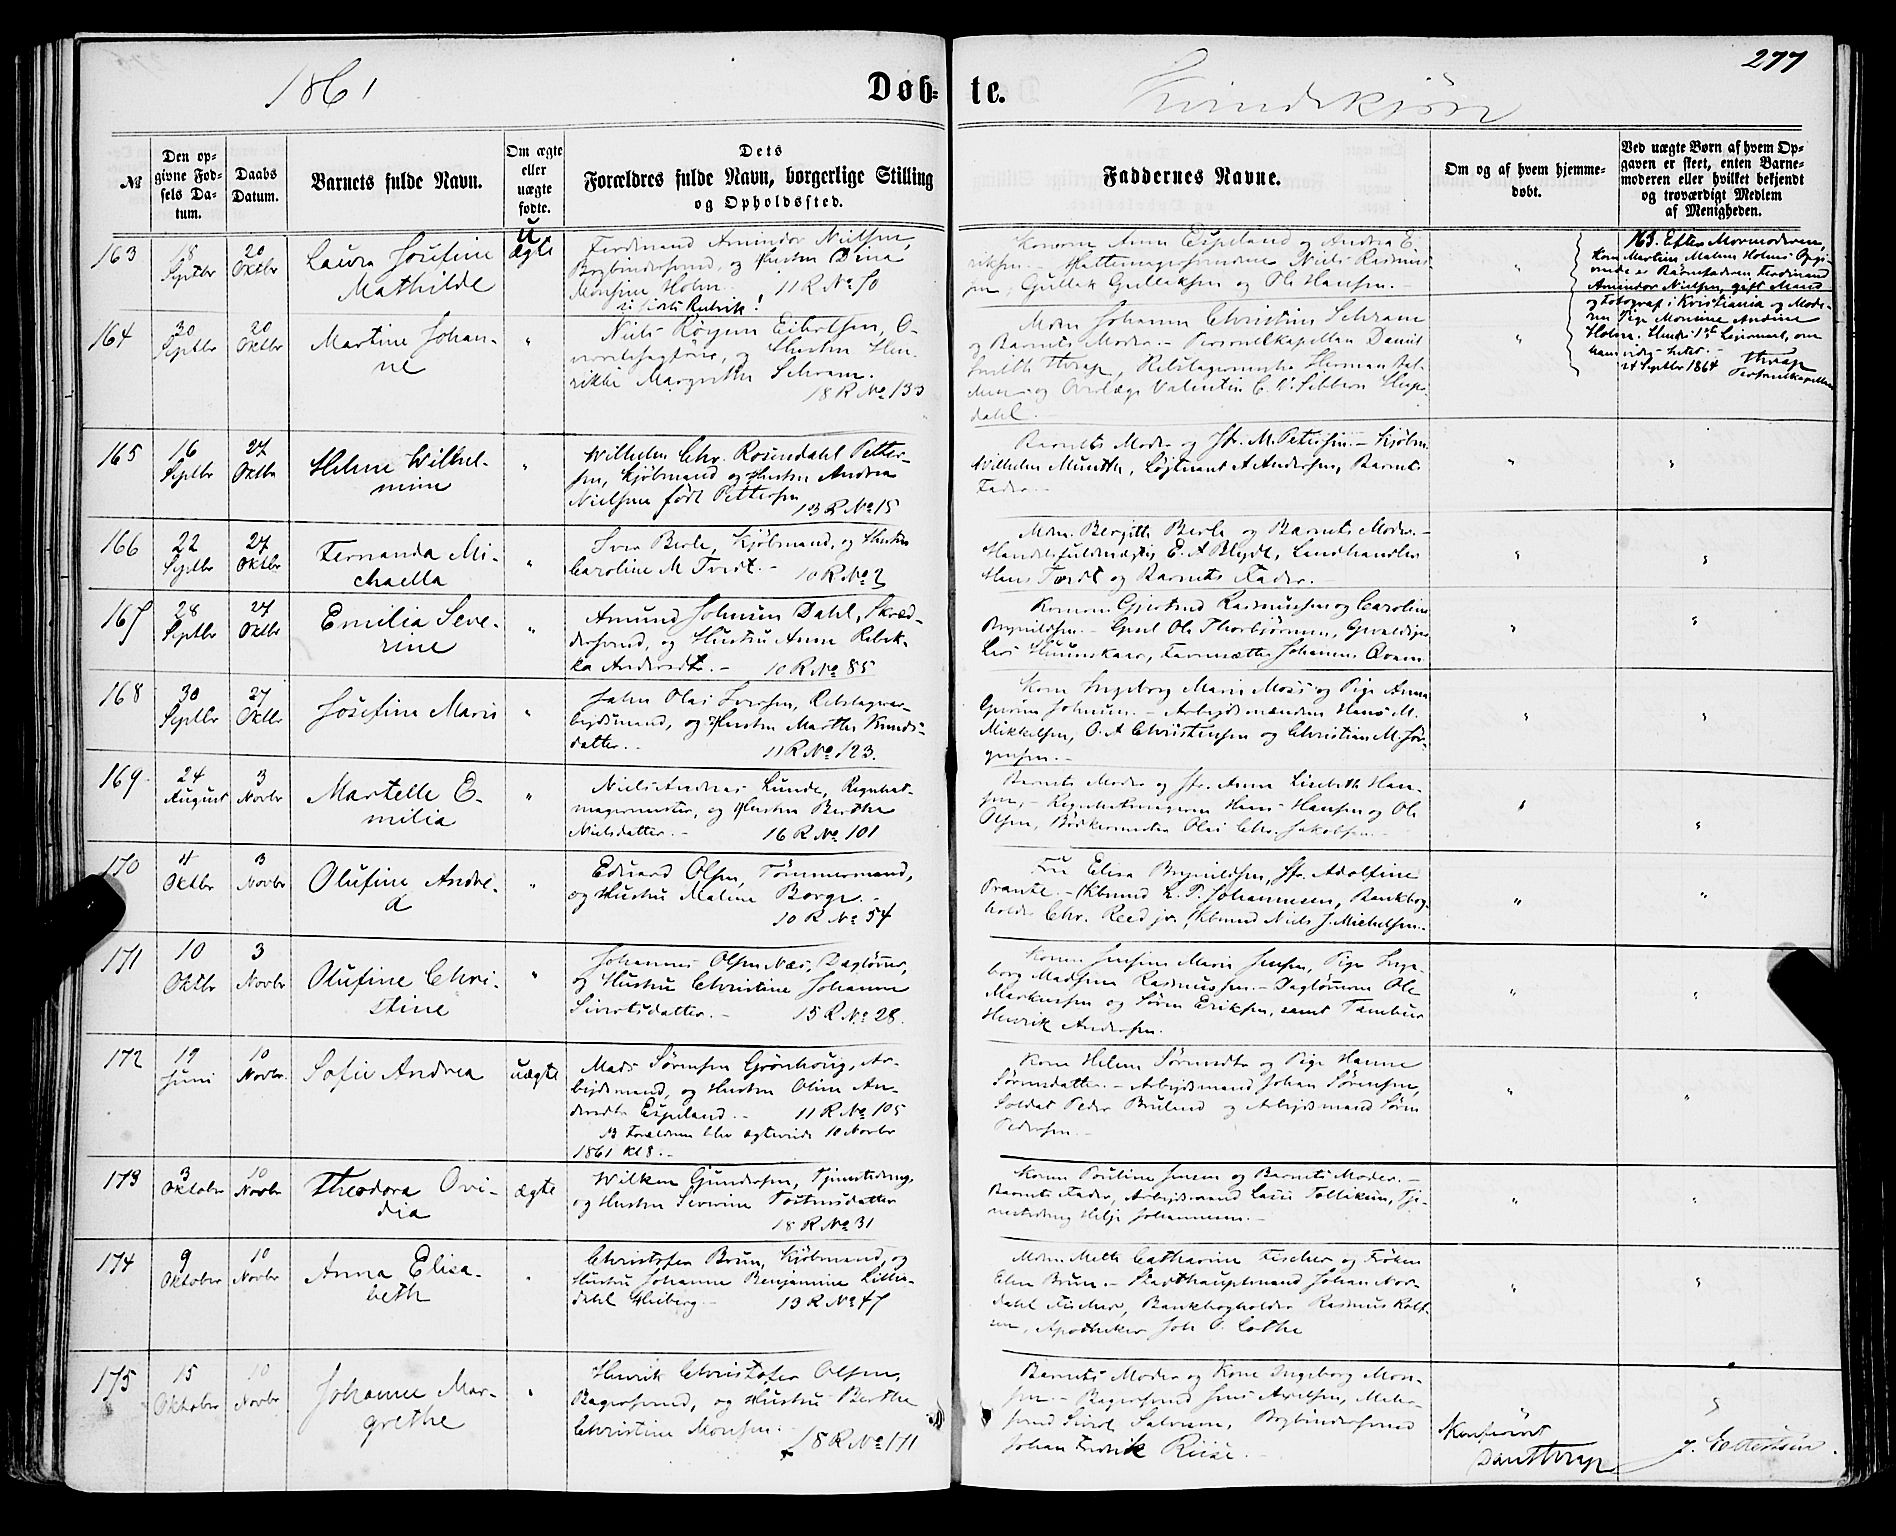 277
1861
Døb= te.
Kvindekjøn
№
Den op-
givne Fød-
sels Da-
tum.
Daabs
Datum.
Barnets fulde Navn.
Om ægte
eller
uægte
fødte.
Dets
Forældres fulde Navn, borgerlige Stilling
og Opholdssted.
Faddernes Navne.
Om og af hvem hjemme-
døbt.
Ved uægte Børn af hvem Op-
gaven er skeet, enten Barne-
moderen eller hvilket bekjendt
og troværdigt Medlem
af Menigheden.
163
18
Septbr
20
Oktbr
Laura Josefine
Mathilde
u
ægte
Ferdinand Amindor Nielsen,
Bogbindersvend, og Hustru Dina
Monsine Holm. 11 R № 50
sidste Rubrik!
Konerne Anna Espeland og Andrea E-
riksen - Hattemagersvendene Niels Rasmus-
sen, Gullak Gullaksen og Ole Hansen. -
NB. Efter Mormoderen,
Kone Martine Malene Holms Opgi-
vende er Barnefaderen Ferdinand
Amindor Nielsen, gift Mand
og Fotograf i Kristiania og Mode-
ren Pige Monsine Andrine
Holm. Hendes 1ste Leiermaal,
Thrap
24 Septbr 1864 Personelkapellan
164
30
Septbr
20
Oktbr
Martine Johan-
ne
"
Niels
og Hustru Hen-
rikke Margrethe Schram.
18 R № 133
Mdm Johanna Christine Schram
og Barnets Moder. - Personelkapellan Daniel
Smith Thrap, Rebslagermester Herman
og Overlæge Valentin C. W. Sibbern
dahl. -
165
16
Septbr
27
Oktbr
Helene Wilhel-
mine
"
Wilhelm Chr. Rosendahl Petter-
sen, Kjøbmand og Hustru Andrea
Nielsine født Pettersen
13 R № 15
Barnets Moder og Jfr. M. Petersen. - Kjøbm
Wilhelm Munthe, Løjtnant A Andersen, Barnets
Fader. -
166
22
Septbr
27
Oktbr
Fernanda Mi-
chaella
"
Iver Berle, Kjøbmand, og Hustru
Caroline M Tvedt. -
10 R № 2
Mdm. Bergitte Berle og Barnets Moder. -
Handelsfuldmægtig E. A Blydt, Landhandler
Hans Tvedt og Barnets Fader. -
167
28
Septbr
27
Oktbr
Emilia Seve-
rine
"
Amund Johnsen Dahl, Skræd-
dersvend, og Hustru Anne Rebek-
ka Andersdtr. - 10 R № 85
Konerne Gjertrud Rasmussen og Caroline
Brynildsen. - Ole Thorbjørnsen,
Lars Huunskaar, Johannes Qvam
168
30
Septbr
27
Oktbr
Josefine Marie
"
John Olai Iversen, Rebslagerar-
bejdsmand, og Hustru Marthe Knuds-
datter. - 11 R № 123.
Kone Ingeborg Marie Moss og Pige Anna
Gurine Johnsen. - Arbejdsmændene Hans M.
Mikkelsen, O. A Christensen og Christian M. Jør-
gensen. -
169
24
August
3
Novbr
Martelle E-
milia
"
Niels Andreas Lunde,
magermester, og Hustru Berthe
Nielsdatter. - 16 R № 101
Barnets Moder og Jfr. Anne Lisebeth Han-
sen, - Hans Hansen og Ole
Olsen, Bødkermester Olai Chr. Jakobsen. -
170
4
Oktbr
3
Novbr
Olufine Andre-
a
"
Eduard Olsen, Tømmermand,
og Hustru Malene Borge. -
10 R № 54
Fru Elisa Brynildsen, Jfr. Adolfine
Frantz. - Kbmnd L. P. Johannesen, Bankbog-
holder Chr. Reed jr., Kbmnd Niels J. Michelsen. -
171
10
Oktbr
3
Novbr
Olufine Chri-
stine
"
Johannes Olsen Næs, Dagløner,
og Hustru Christine Johanne
Sivertsdatter. - 15 R № 28.
Kone Josefine Marie Jensen, Pige Inge-
borg Madsine Rasmussen. - Daglønerne Ole
Markussen og Søren Eriksen, samt Tambur
Henrik Andersen.
172
19
Juni
10
Novbr.
Sofie Andrea
uægte
Mads Sørensen Grønhoug, Ar-
bejdsmand, og Hustru Oline An-
dersdtr Espeland. - 11 R № 105
NB Forældrene blev ægteviede 10 Novbr
1861 Kl 8. -
Kone Helene Sørensdtr og Pige Hanne
Sørensdatter. - Arbejdsmand Johan Sørensen,
Soldat Peder Bruland og Arbejdsmand Søren
Pedersen. -
173
3
Oktober
10
Novbr
Theodora Ovi-
dia
ægte
Wilken Gundersen, Tjenestedreng,
og Hustru Severine Tostensdatter
18 R № 31
Kone Pouline Jensen og Barnets Moder. -
Barnets Fader, Arbejdsmand Lasse Tollaksen, Tje-
nestedreng Helje Johannesen. -
174
9
Oktober
10
Novbr
Anna Elisa-
beth
"
Christofer Brun, Kjøbmand, og
Hustru Johanne Benjamine Lille-
dahl Heiberg. - 13 R № 47
Mdm Mette Catharine Fischer og Frøken
Elen Brun. - Stadthauptmand Johan Nor-
dahl Fischer, Bankbogholder Rasmus Rolf-
sen, Apotheker Joh C. Lothe
175
15
Oktober
10
Novbr
Johanne Mar-
grethe
"
Henrik Christofer Olsen,
Bagersvend, og Hustru Berthe
Christine Monsen. -
18 R № 111
Barnets Moder og Kone Ingeborg Mon-
sen. - Bagersvend Jens Axelsen, Maler-
svend Sivert Salvesen, Bogbindersvend
Johan Fredrik Riise. -
Konfereret
DanThrap
J. Ellertsen.